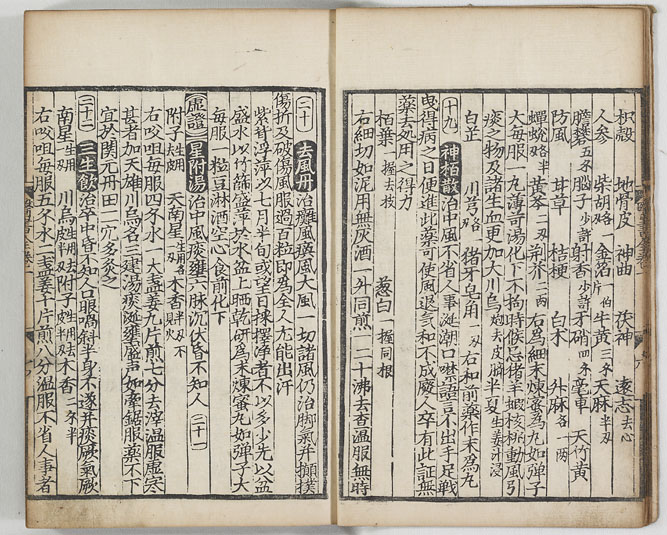 枳殼 地骨皮 神曲 茯神 遠志去心
人參 柴胡各 金箔片 牛黃三分 天麻半刃
膽礬五分 腦子少許 射香少許 牙硝四分 天竹黃
防風 甘草 桔梗 白朮 升麻各一兩
蟬蛻半 黃芩二刃 荊芥二兩 右為細末煉蜜為丸如彈子
大每服一丸薄荷湯化下不拘時候忌猪羊蝦核桃動風引
痰之物及諸生血更加大川烏炮去皮臍半夏生姜汁浸
白芷 川芎各 猪牙皂角一刃 右和前藥作末為丸
十九 神栢散治中風不省人事涎潮口噤語言不出手足戰
曳得病之日便進此藥可使風退氣和不成癈人卒有此証無
藥去処用之得力
栢葉一握去枝 葱白一握同根
右細切如泥用無灰酒一升同煎一二十沸去查溫服無時
二十 去風丹治癱風瘓風大風一切諸風仍治脚氣并攧撲
傷折及破傷風服過百粒即為全人尤能出汗
紫背浮萍以七月半旬或望日採擇淨者不以多少先以盆
盛水以竹篩盛萍於水盆上晒乾研為末煉蜜丸如彈子大
每服一粒豆淋酒空心食前化下
虛證 星附湯治中風痰壅六脉沉伏昏不知人 二十一
附子生去皮 天南星生用各 木香半刃不見火
右㕮咀每服四錢水一大盞姜九片煎七分去滓溫服虛寒
甚者加天雄川烏名三建湯痰涎壅盛声如牽鋸服藥不下
宜於関元丹田二穴多灸之
二十二 三生飲治卒中昏不知人口眼喎斜半身不遂并痰厥氣厥
南星生一刃 川烏生去皮半刃 附子生去皮半刃 木香二分半
右㕮咀每服五錢水二盞姜十片煎八分溫服不省人事者